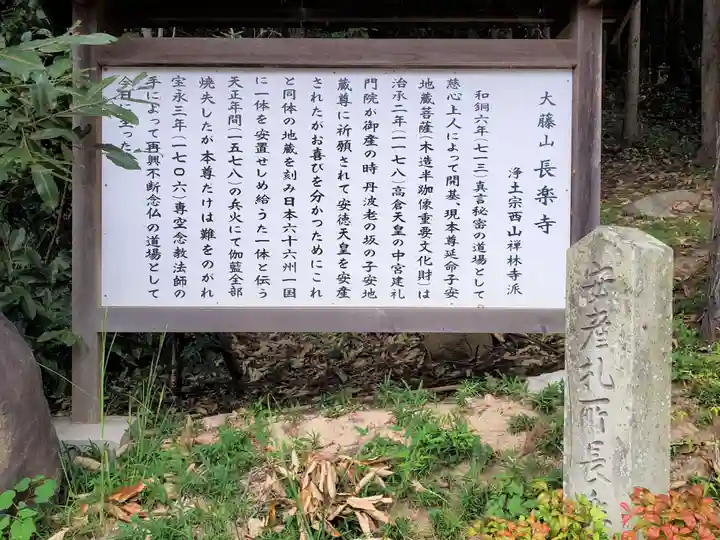 大藤山 長楽寺
浄土宗西山禅林寺派
和銅六年(七一三)真言秘密の道場として
慈心上人によって開基、現本尊延命子安
地蔵菩薩(木造半跏像重要文化財)は
治承二年(一一七八)高倉天皇の中宮建礼
門院が御産の時 丹波老の坂の子安地
蔵尊に祈願されて安徳天皇を安産
されたがお喜びを分かつためにこれ
と同体の地蔵を刻み日本六十六州一国
に一体を安置せしめ給うた一体と伝う
天正年間(一五七八)の兵火にて伽藍全部
焼失したが本尊だけは難をのがれ
宝永三年(一七〇六)専空念教法師の
手によって再興不断念仏の道場として
今日に立った
安産礼所長